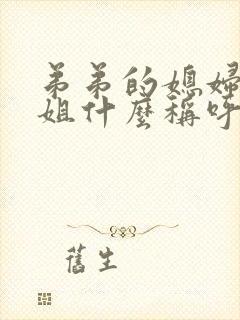 弟弟的媳婦
姐什麼稱呼
舊生